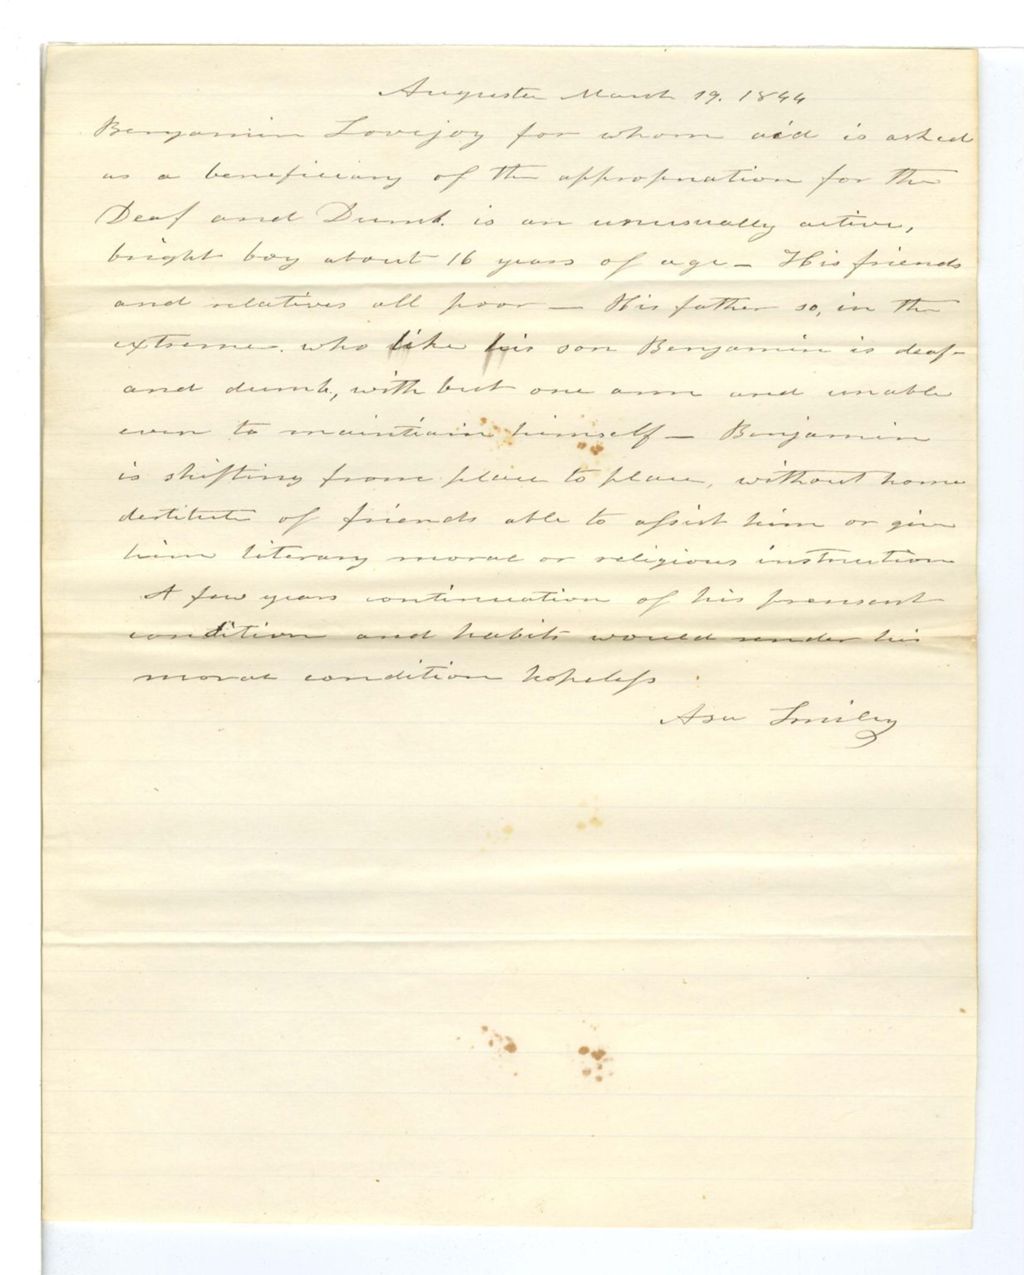 Augusta March 19. 1844
Benjamin Lovejoy for whom aid is asked
as a beneficiary of the appropriation for the
Deaf and Dumb. is an unusually active,
bright boy about 16 years of age – His friends
and relatives all poor – His father so, in the
extreme. who like his son Benjamin is deaf
and dumb, with but one arm and unable
even to maintain himself – Benjamin
is shifting from place to place, without home
destitute of friends able to assist him or give
him literary moral or religious instruction
A few years continuation of his presant
condition and habits would render his
moral condition hopeless
Asa Smiley